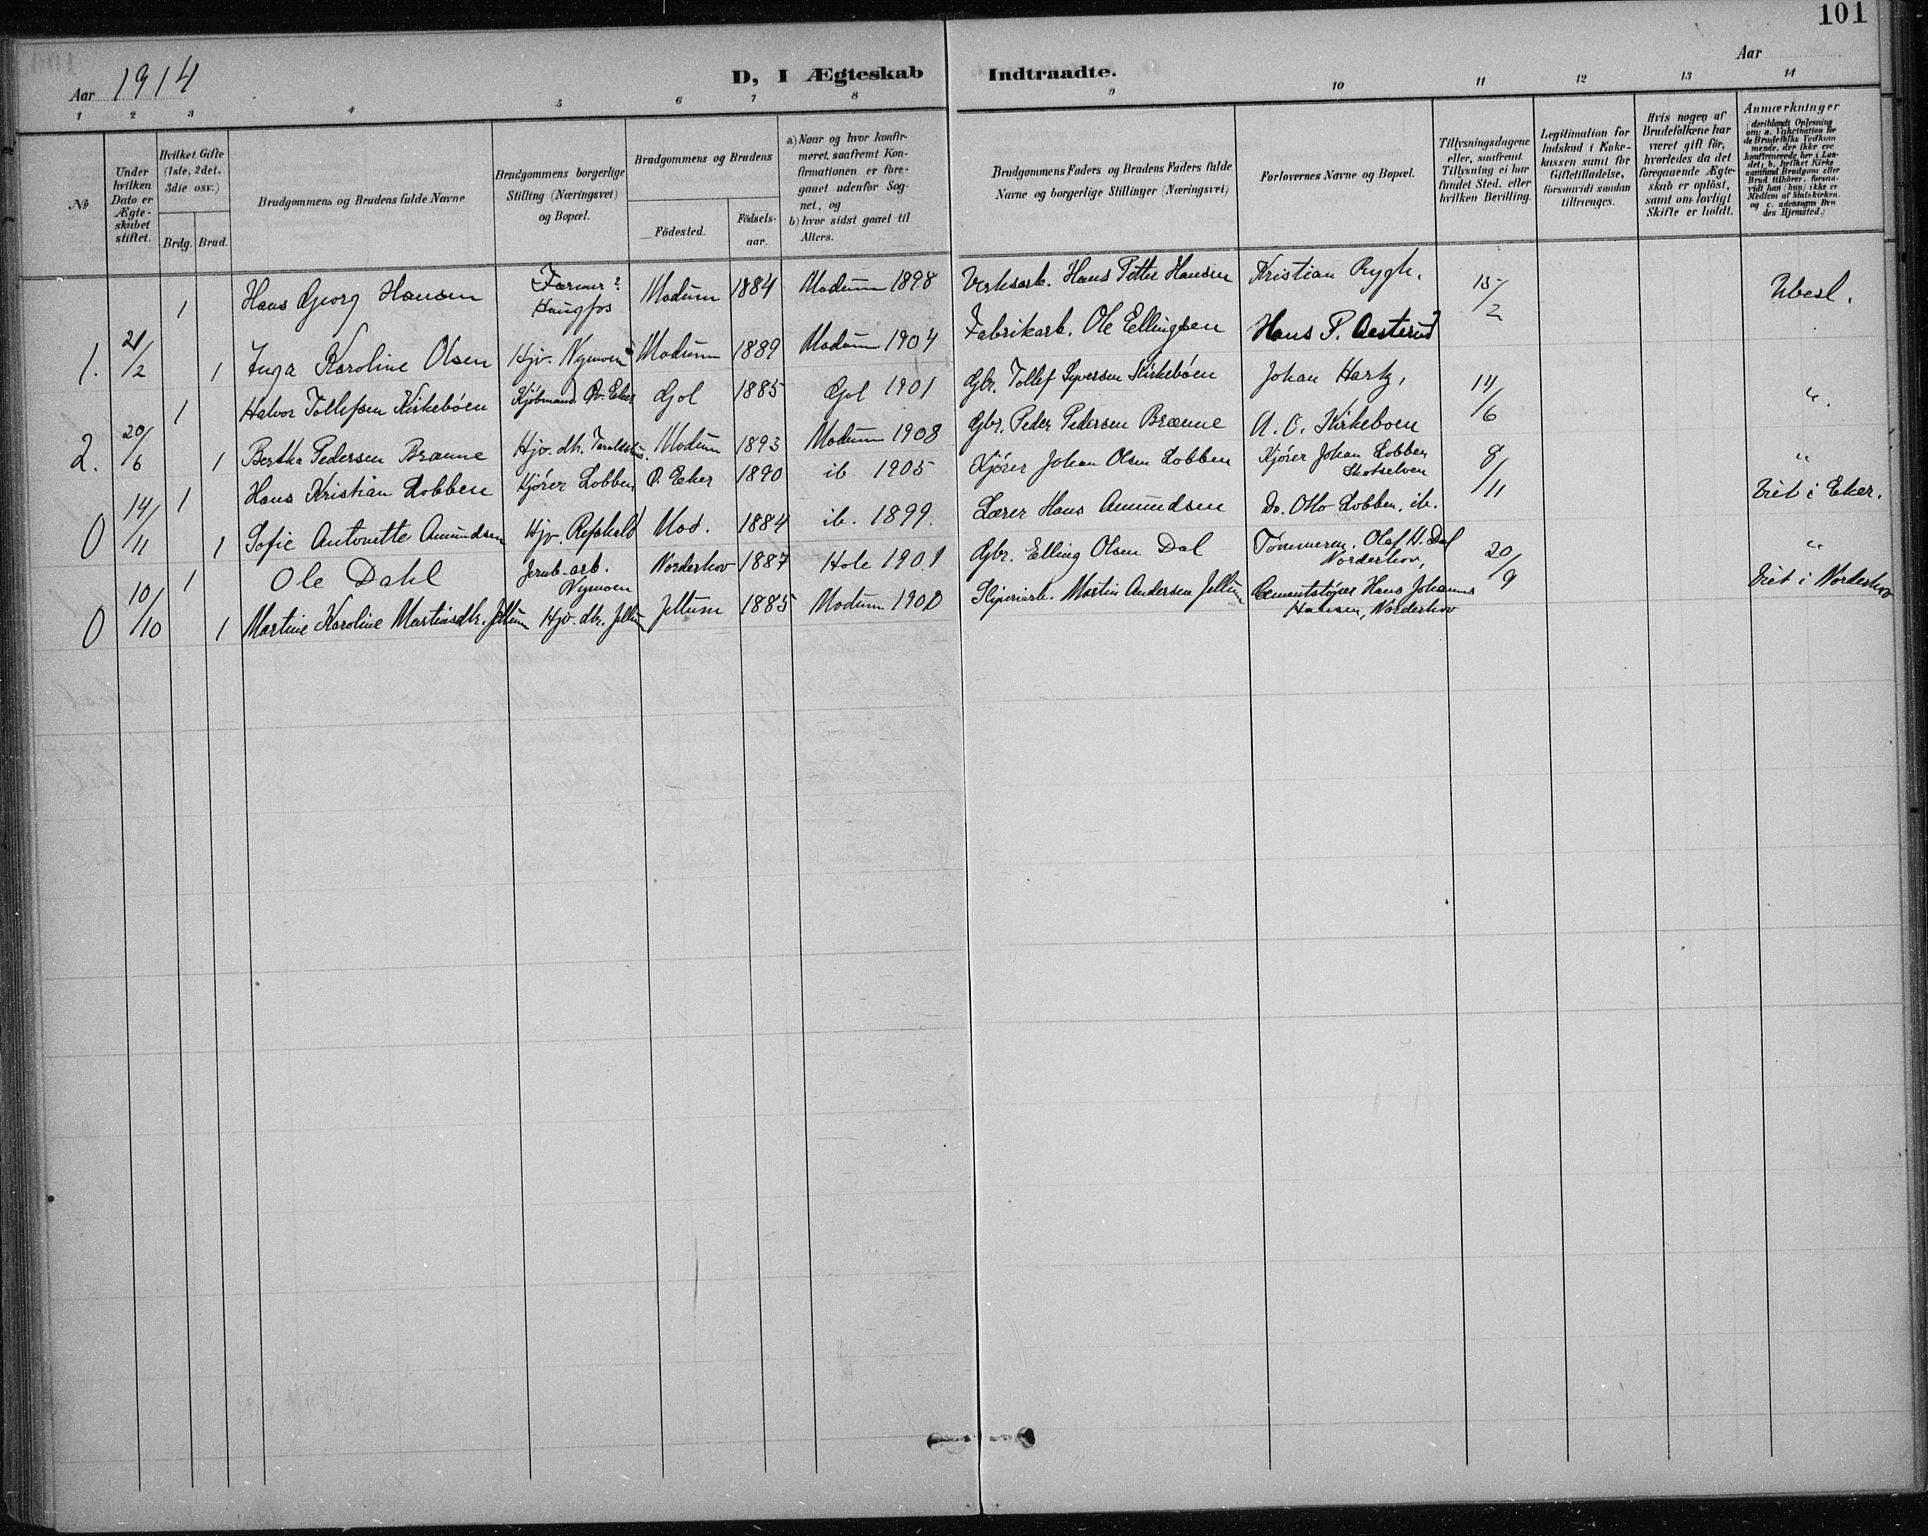 101
Aar 1914
D, I Ægteskab Indtraadte.
Aar
1 2 3 4 5 6 7 8 9 10 11 12 13 14
No
Under hvilken Dato er Ægteskabet stiftet.
Hvilket Gifte (1ste, 2det, 3die osv.)
Brdg. Brud.
Brudgommens og Brudens fulde Navne
Brudgommens borgerlige Stilling (Næringsvei) og Bopæl.
Brudgommens og Brudens
Födested.
Födselsaar.
a) Naar og hvor konfirmeret, saafremt Konfirmationen er foregaaet udenfor Sognet, og
b) hvor sidst gaaet til Alters.
Brudgommens Faders og Brudens Faders fulde Navne og borgerlige Stillinger (Næringsvei)
Forlovernes Navne og Bopæl.
Tillysningsdagene eller, saafremt Tillysning ei har fundet Sted, efter hvilken Bevilling.
Legitimation for Indskud i Enkekassen samt for Giftetilladelse, forsaavidt saadan tiltrænges.
Hvis nogen af Brudefolkene har været gift för, hvorledes da det foregaaende Ægteskab er oplöst, samt om lovligt Skifte er holdt.
Anmærkninger (deriblandt Oplysning om: a. Vakcination for de Brudefolks Vedkommende, der ikke ere konfirmerede her i Landet; b. hvilket Kirkesamfund Brudgom eller Brud tilhører, forsaavidt han (hun) ikke er Medlem af Statskirken, og c. udensogns Brudes Hjemsted.)
1 Hans Georg Hansen Farmer? Haugfos Modum 1884 Modum 1898 Verksarb. Hans Petter Hansen Kristian Rygh. 15/2 Ubesl.
1. 21/2 1 Inga Karoline Olsen Hjv. Nymoen Modum 1889 Modum 1904 Fabrikarb. Ole Ellingsen Hans P.
1 Halvor Tollefsen Kirkebøen Kjøbmand Ø. Eker Gol 1885 Gol 1901 Gbr. Tollef Syversen Kirkebøen Johan Hartz, 14/6 "
2. 20/6 1 Bertha Pedersen Brænne Hjv. dtr. Modum 1893 Modum 1908 Gbr. Peder Pedersen Brænne A. O. Kirkeboen "
1 Hans Kristian Lobben Kjører Lobben Ø. Eker 1890 ib. 1905 Kjører Johan Olsen Lobben Kjører Johan Lobben Skotselven 8/11 Viet i Eker.
0 14/11 1 Sofie Antonette Amundsen Hjv. Mod. 1884 ib. 1899. Lærer Hans Amundsen Do. Otto Lobben, ib. "
1 Ole Dahl Jernb. arb. Nymoen Norderhov 1887 Hole 1901 Gbr. Elling Olsen Dal Tømmerm. Olaf H. Dal Norderhov, 20/9 Viet i Norderhov
0 10/10 1 Martine Karoline Martinsdtr. Jellum Hjv. dtr. Jellum Jellum 1885 Modum 1900 Sliperiarb. Martin Andersen Jellum Cementstøper Hans Johannes Hansen, Norderhov